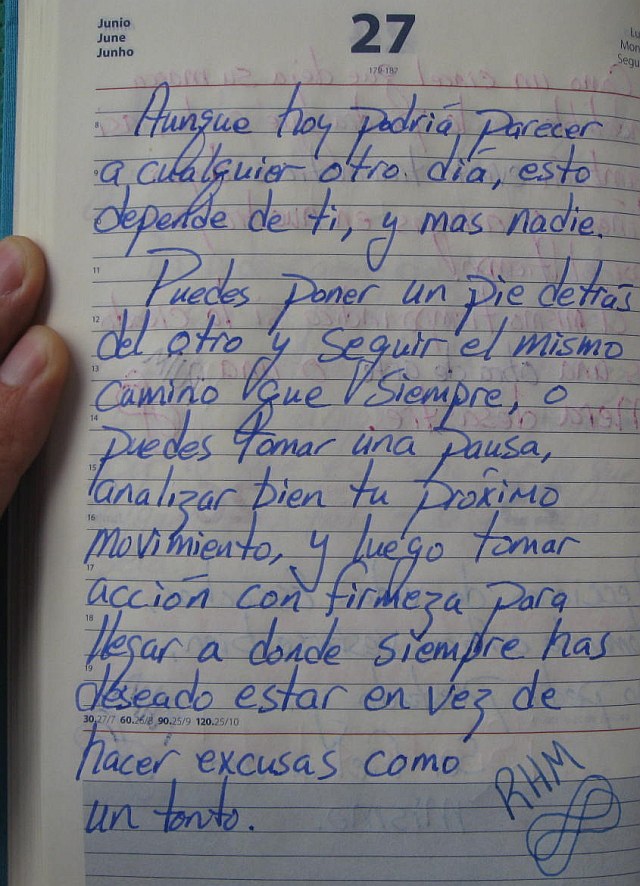 Junio
June
Junho
27
179-187
Lu
Mon
Segu
Aunque hoy podriá parecer
8
a cualquier otro. diá, esto
9
depende de ti, y mas nadie.
11
Puedes poner un pie detrás
12
del otro y seguir el mismo
13
camino que siempre, o
14
puedes tomar una pausa,
15
analizar bien tu próximo
16
movimiento, y luego tomar
17
acción con firmeza para
18
llegar a donde siempre has
19
deseado estar en vez de
30.27/7 60.26/8 90.25/9 120.25/10
hacer excusas como
un tonto.
RHM